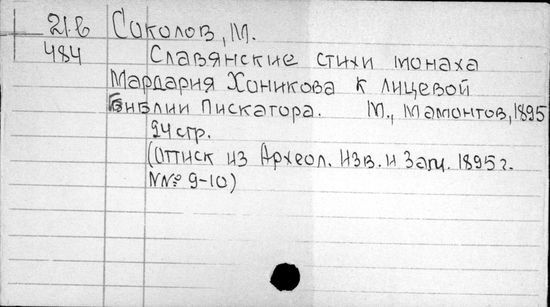 21.в Соколов, М.
484 Славянские стихи монаха
Мардария Хоникова к лицевой
Библии Пискатора. М., Мамонтов, 1895
24 стр.
(Оттиск из Археол. Изв. и Зам. 1895 г.
NN° 9-10)